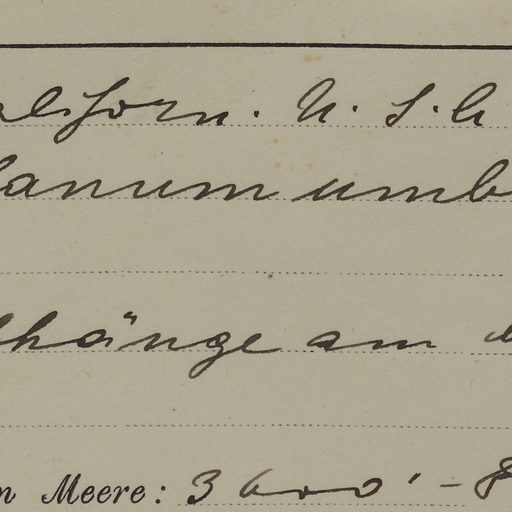 aliforn. U. S. A
lanum umb
hänge am
n Meere: 3600' -